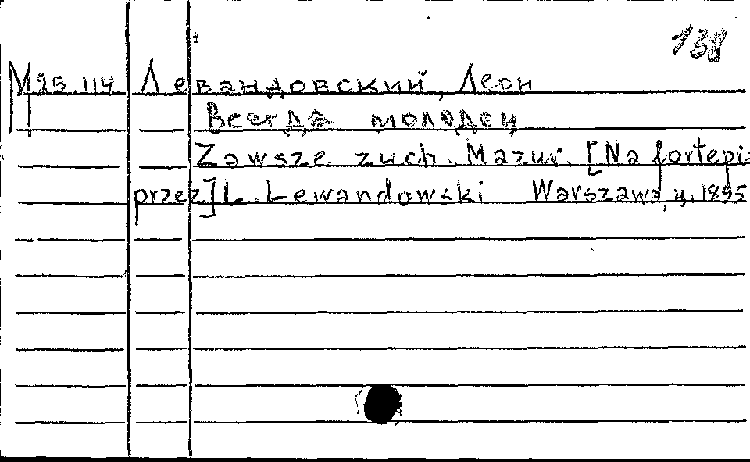 138
М 95 114 Левандовский, Леон
Всегда молодец
Zawsze zuch. Mazur. [Na fortepia
przez] L. Lewandowski Warszawa, 1895